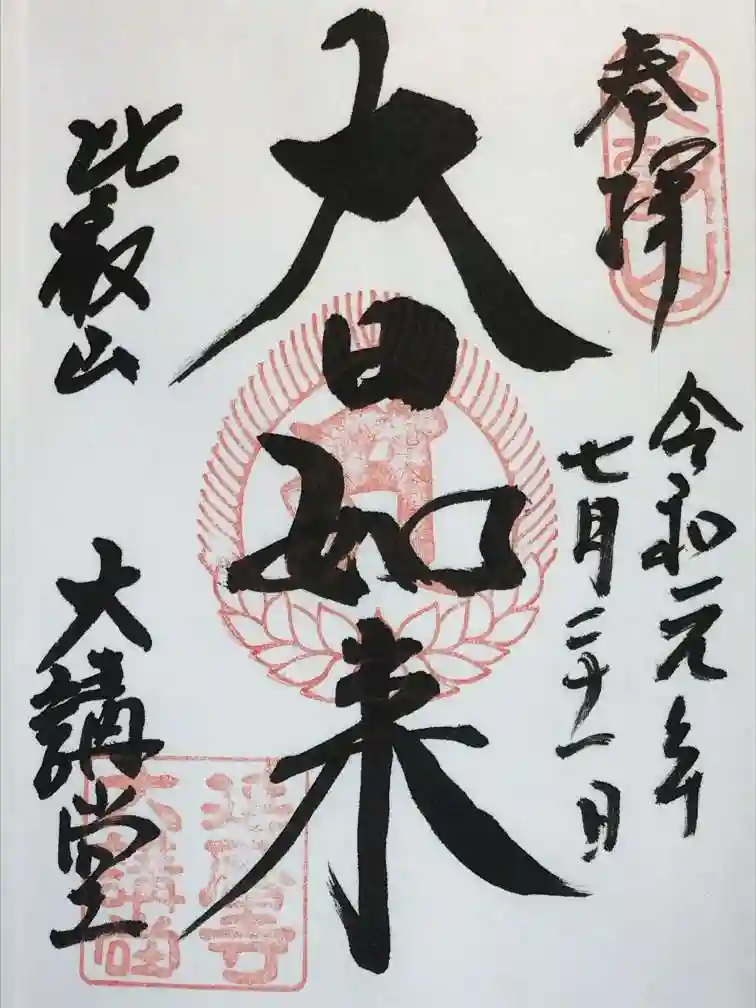 奉拝
令和元年
七月二十一日
大日如来
比叡山
大講堂
延暦寺
大講堂